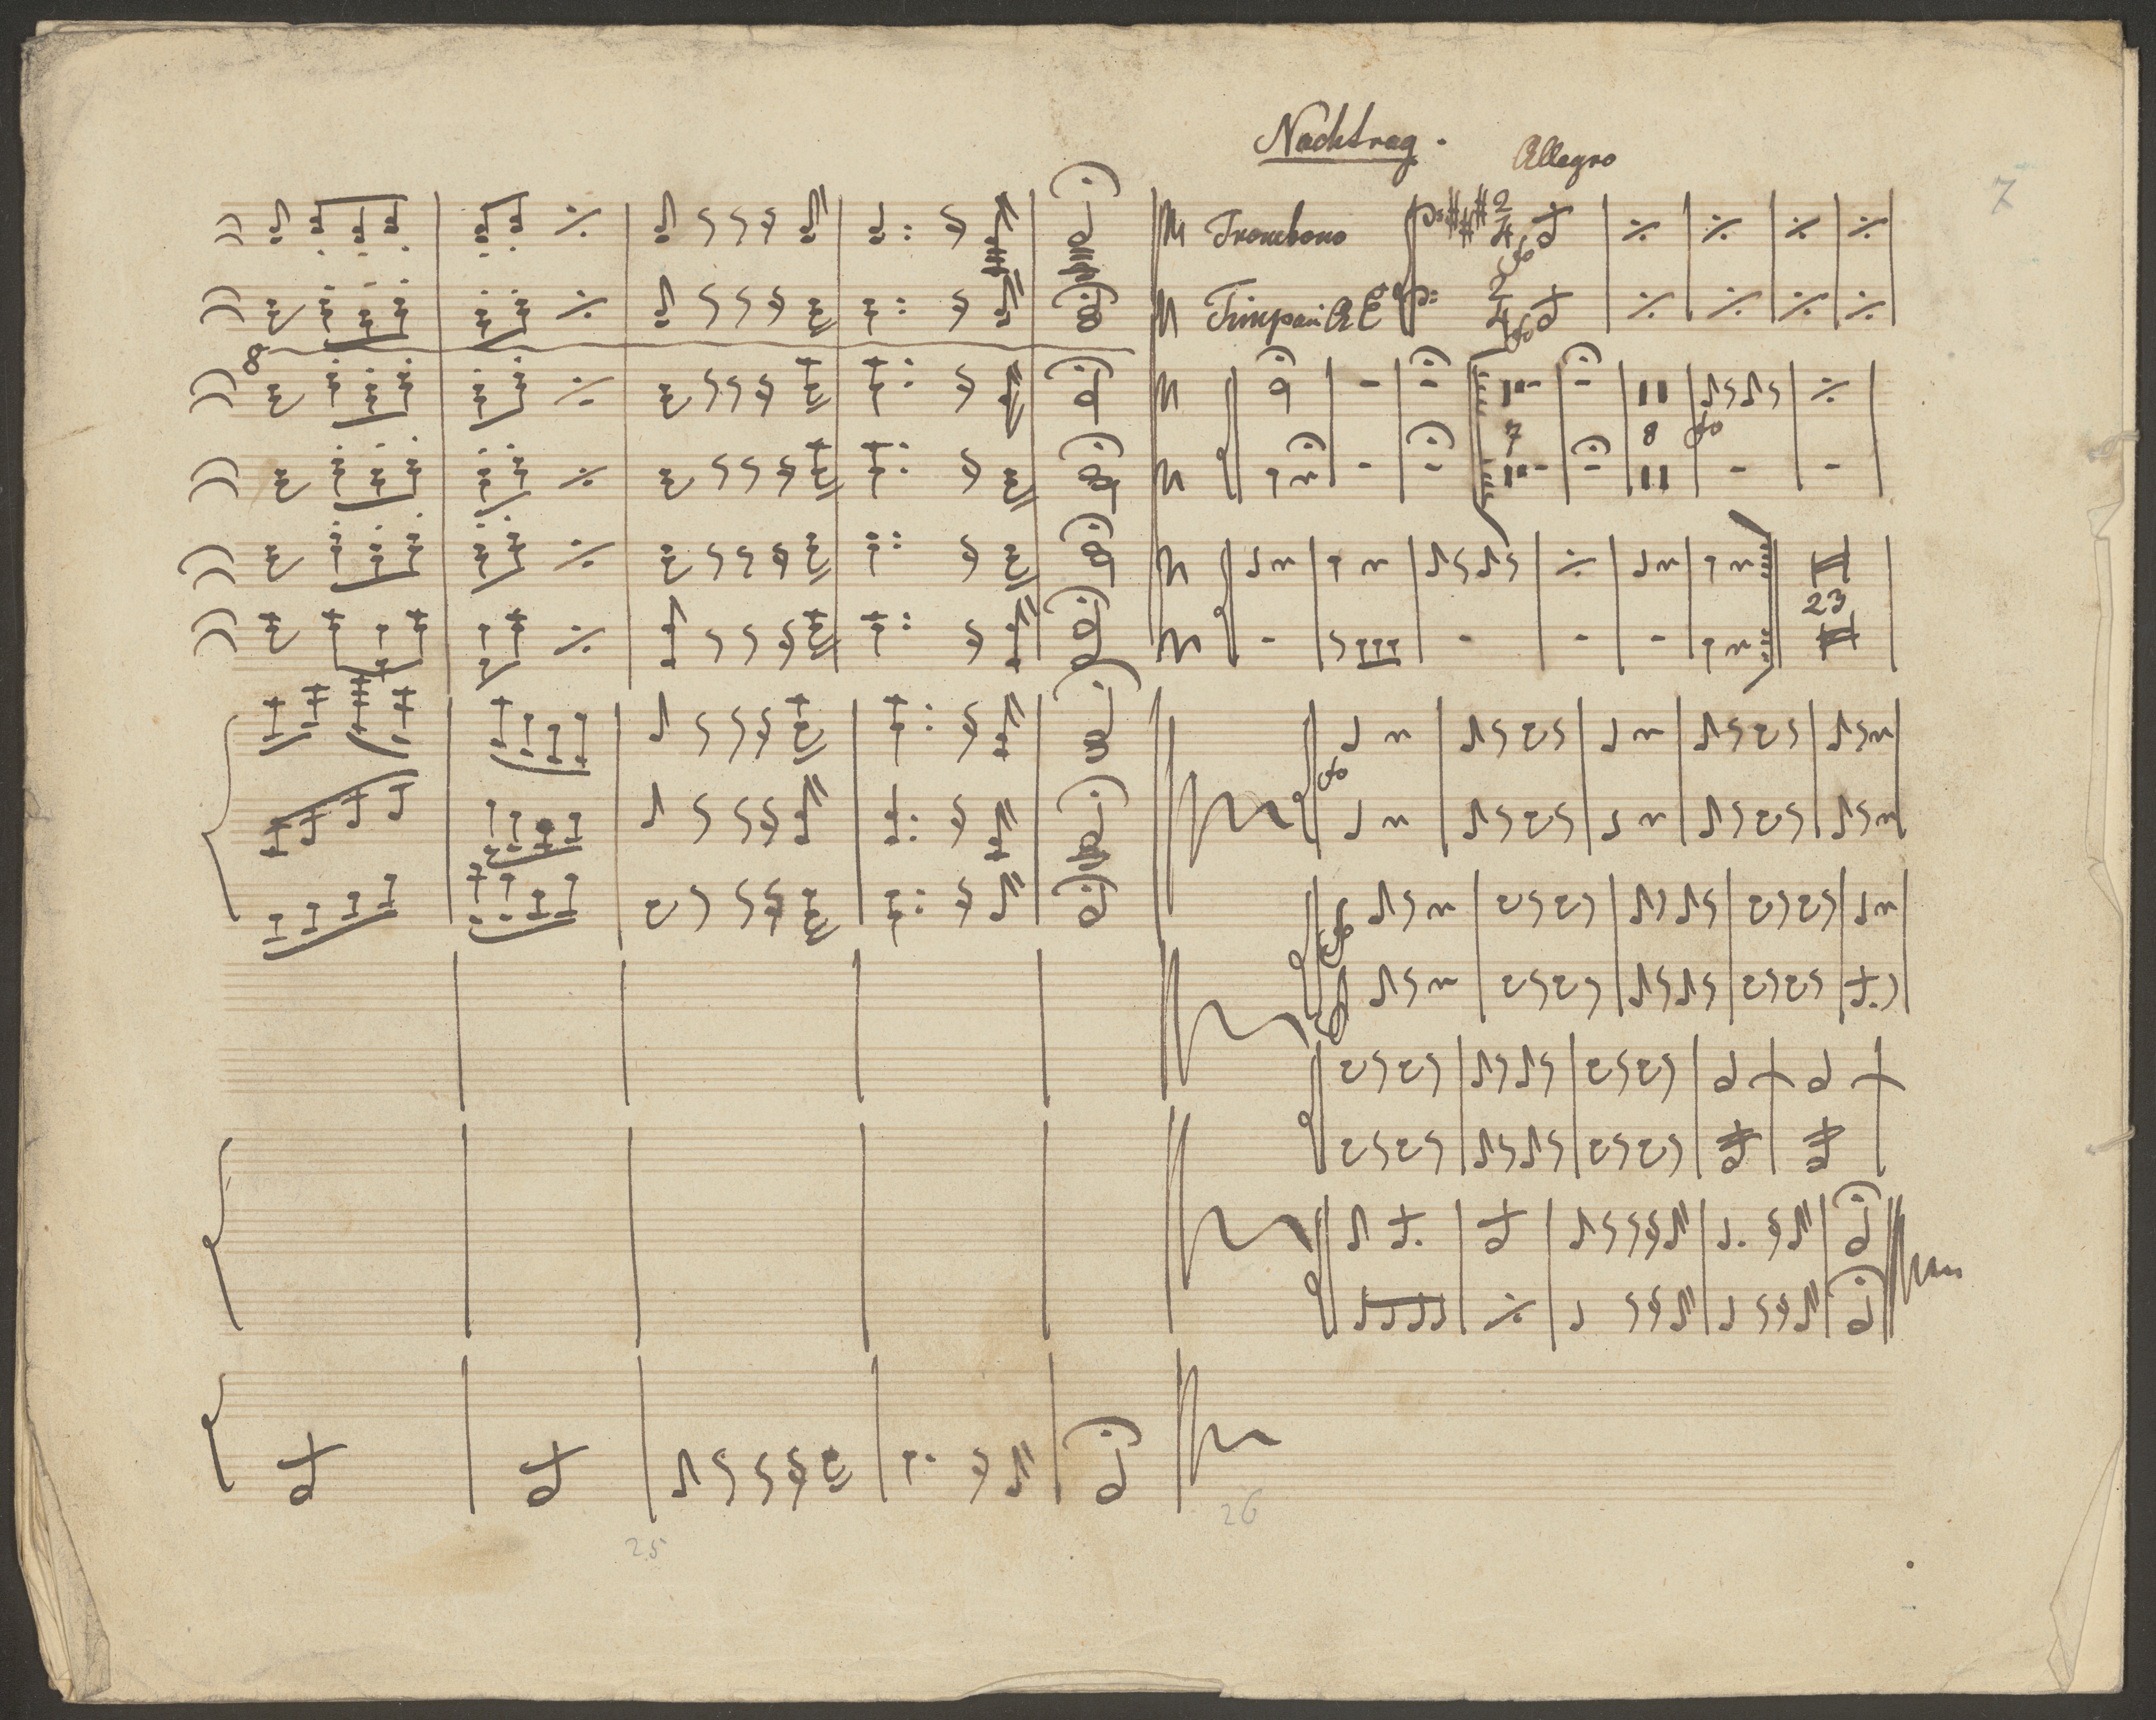 Nachtrag.
Allegro
7
Trombono
2
4
fo
Timpani A E
2
4
fo
8
7
8
fo
23
fo
25
26